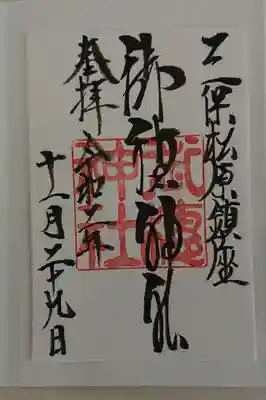 三保松原鎮座
御穂神社
奉拝 令和二年
十一月二十九日